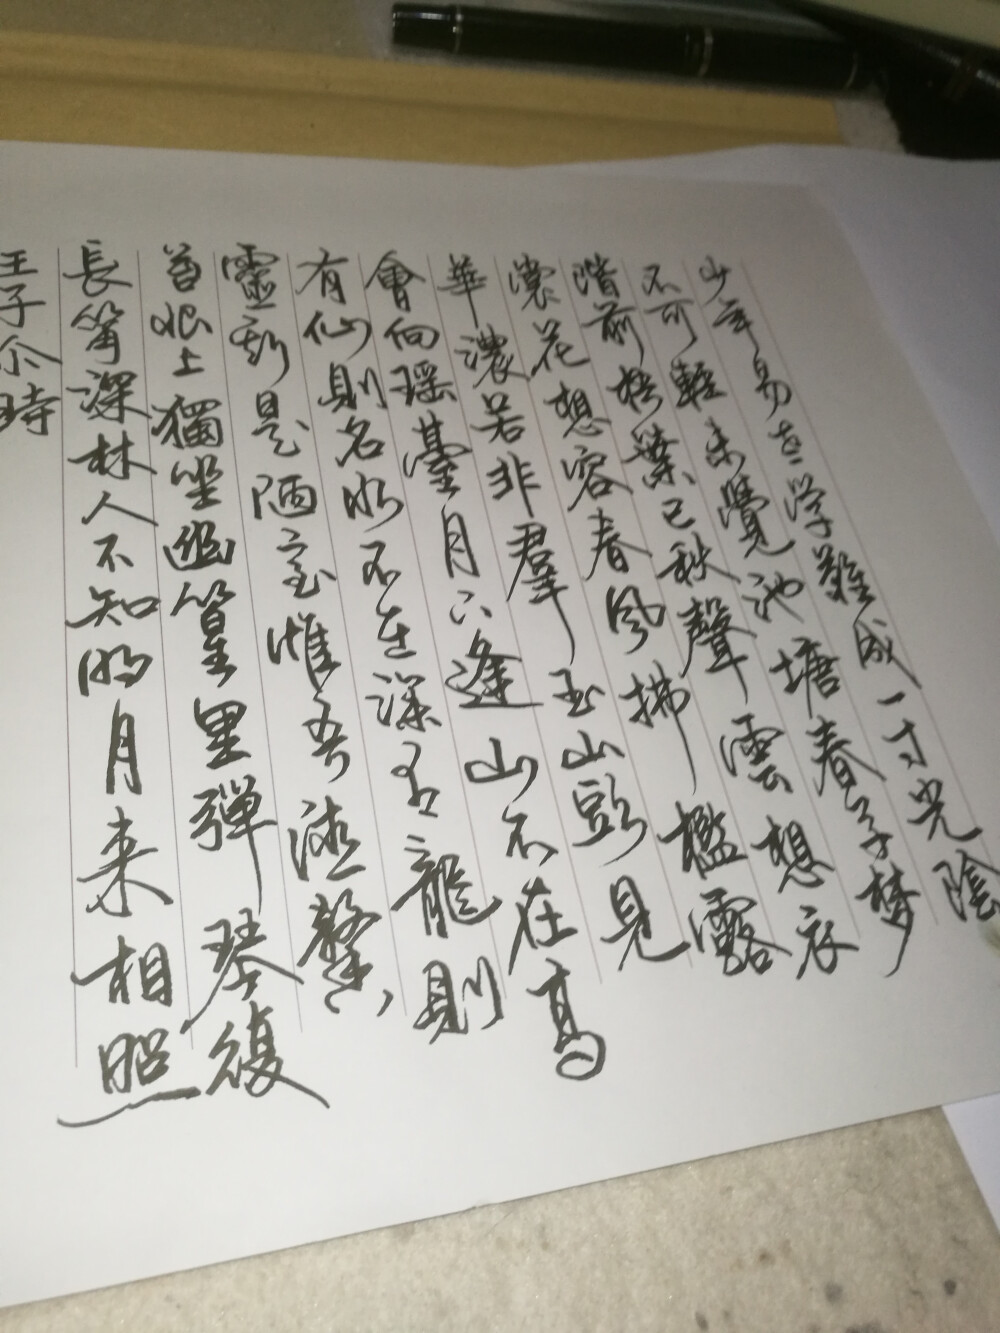 少年易老学難成一寸光陰
不可輕未覺池塘春草梦
階前梧葉已秋聲雲想衣
裳花想容春風拂檻露
華濃若非羣玉山頭見
會向瑶臺月下逢山不在高
有仙則名水不在深有龍則
靈斯是陋室惟吾德馨
苔痕上獨坐幽篁里彈琴復
長嘯深林人不知明月来相照
王子時